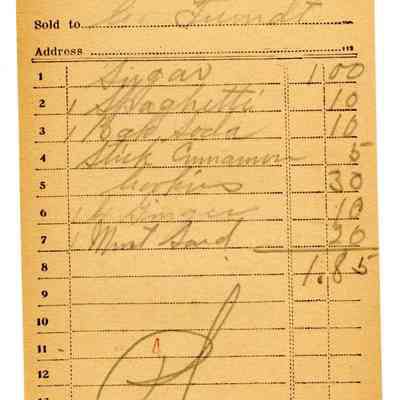 Sold to Fundt
Address 112
1 Sugar 1 00
2 1 Spaghetti 10
3 1 Bak Soda 10
4 Stick Cinnamon 5
5 Cookies 30
6 1 Ginger 10
7 1 Must Sard 20
8 1.85
9
10
11
12
13